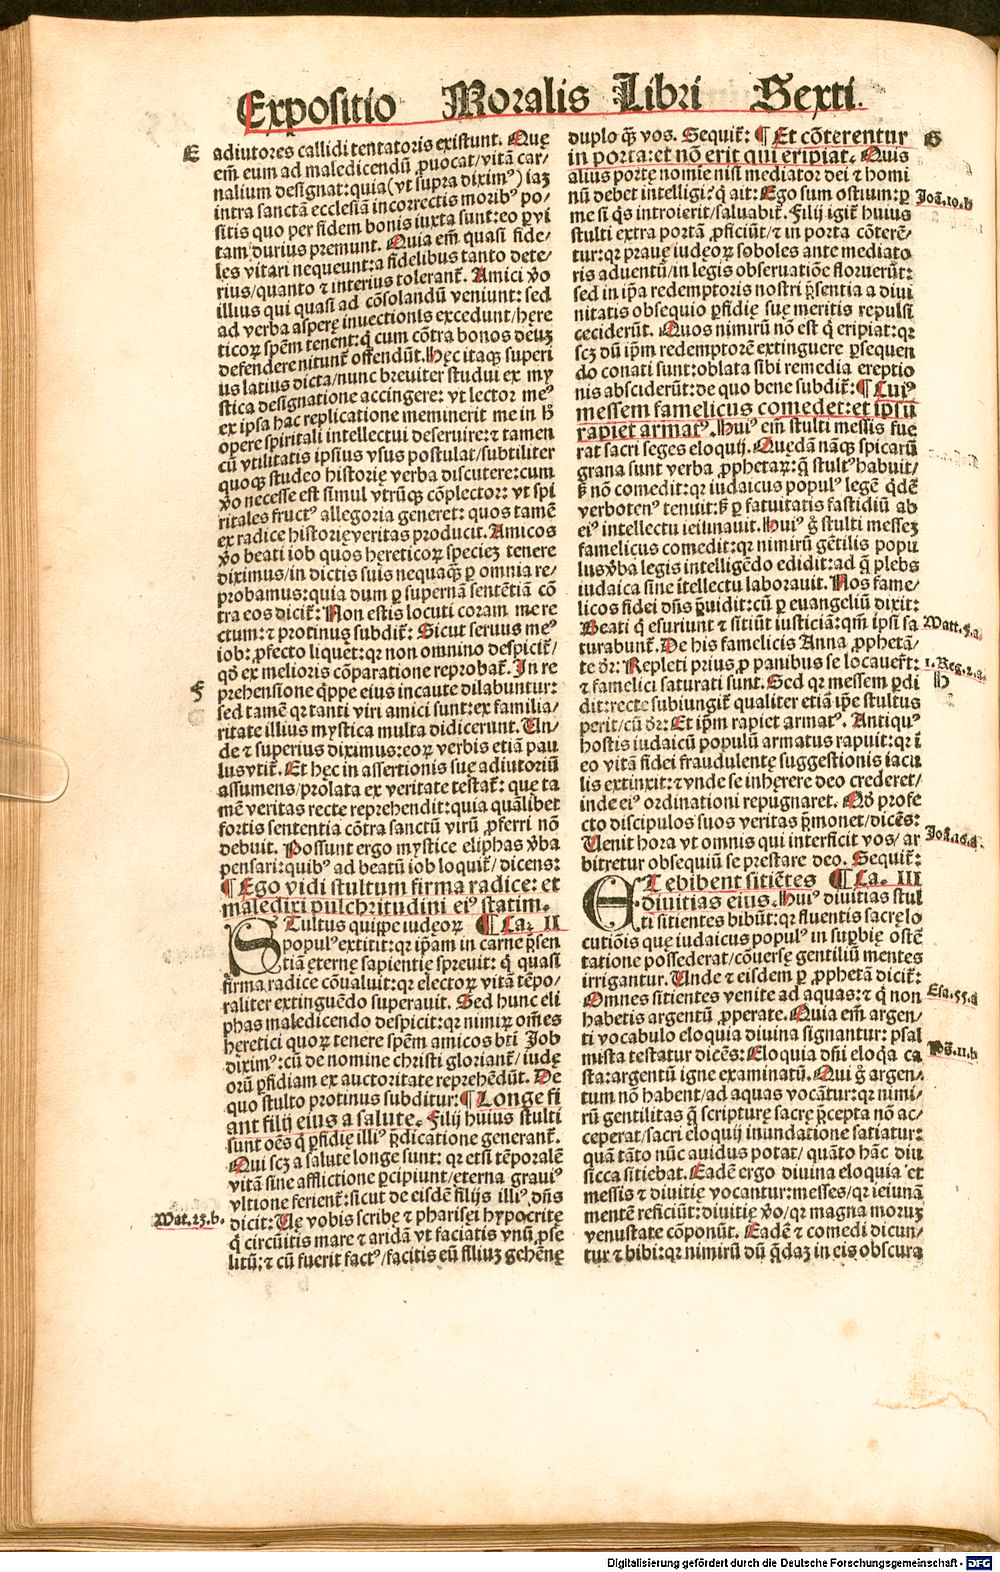 Expositio Moralis Libri Sexti.
E
adiutores callidi tentatoris existunt. Que
em̄ eum ad maledicendū ꝓuocat/vitā car⸗
nalium designat:quia(vt supra dixim⁹) iaꝫ
intra sanctā ecclesiā incorrectis morib⁹ po⸗
sitis quo per fidem bonis iuxta sunt:eo ꝑ vi
tam durius premunt. Quia em̄ quasi fide⸗
les vitari nequeunt:a fidelibus tanto dete⸗
rius/quanto ⁊ interius tolerant᷑. Amici v̄o
illius qui quasi ad cōsolandū veniunt: sed
ad verba asperę inuectionis excedunt/hęre
ticoꝝ spēm tenent:q̇ cum cōtra bonos deuꝫ
defendere nitunt᷑ offendūt. Hęc itaqꝫ superi
us latius dicta/nunc breuiter studui ex my
stica designatione accingere: vt lector me⁹
ex ipsa hac replicatione meminerit me in h̄
opere spiritali intellectui deseruire:⁊ tamen
cū vtilitatis ipsius vsus postulat/subtiliter
quoqꝫ studeo historię verba discutere:cum
v̄o necesse est simul vtrūqꝫ cōplector: vt spi
ritales fruct⁹ allegoria generet: quos tamē
ex radice historię veritas producit. Amicos
v̄o beati iob quos hęreticoꝝ specieꝫ tenere
diximus/in dictis suis nequaqꝫ̄ ꝑ omnia re⸗
probamus:quia dum ꝑ supernā sentētiā cō
tra eos dicit᷑: Non estis locuti coram me re
ctum:⁊ protinus subdit᷑: Sicut seruus me⁹
iob: ꝓfecto liquet:qꝛ non omnino despicit᷑/
qd̄ ex melioris cōparatione reprobat᷑. In re
F
prehensione q̇ppe eius incaute dilabuntur:
sed tamē qꝛ tanti viri amici sunt:ex familia⸗
ritate illius mystica multa didicerunt. Vn⸗
de ⁊ superius diximus:eoꝝ verbis etiā pau
lus vtit᷑. Et hęc in assertionis suę adiutoriū
assumens/prolata ex veritate testat᷑: que ta
mē veritas recte reprehendit:quia quālibet
fortis sententia cōtra sanctū virū ꝓferri nō
debuit. Possunt ergo mystice eliphas v̄ba
pensari:quib⁹ ad beatū iob loquit᷑/dicens:
¶ Ego vidi stultum firma radice: et
maledixi pulchritudini ei⁹ statim.
Stultus quippe iudeoꝝ ¶ Ca. II
popul⁹ extitit:qꝛ ip̄am in carne p̄sen
tiā ęternę sapientię spreuit: q̇ quasi
firma radice cōualuit:qꝛ electoꝝ vitā tēpo⸗
raliter extinguēdo superauit. Sed hunc eli
phas maledicendo despicit:qꝛ nimiꝝ om̄es
hęretici quoꝝ tenere spēm amicos bt̄i Job
dixim⁹:cū de nomine christi gloriant᷑/iudę
orū ꝑfidiam ex auctoritate reprehēdūt. De
quo stulto protinus subditur: ¶ Longe fi
ant filij eius a salute. Filij huius stulti
sunt oēs q̇ ꝑfidię illi⁹ p̄dicatione generant᷑.
Qui scꝫ a salute longe sunt: qꝛ etsi tēporalē
vitā sine afflictione ꝑcipiunt/eterna graui⁹
vltione ferient᷑:sicut de eisdē filijs illi⁹ dn̄s
Mat. 23. b.
dicit: Vę vobis scribę ⁊ pharisęi hypocritę
q̇ circūitis mare ⁊ aridā vt faciatis vnū ꝓse
litū;⁊ cū fuerit fact⁹/facitis eū filiuꝫ gehēnę
G
duplo qꝫ̄ vos. Sequit᷑: ¶ Et cōterentur
in porta:et nō erit qui eripiat. Quis
alius portę nomie nisi mediator dei ⁊ homi
nū debet intelligi? q̇ ait: Ego sum ostium:ꝑ
Joā. 10. b
me si q̇s introierit/saluabit᷑. Filij igit᷑ huius
stulti extra portā ꝓficiūt/⁊ in porta cōterē⸗
tur:qꝛ prauę iudęoꝝ soboles ante mediato
ris aduentū/in legis obseruatiōe floruerūt:
sed in ip̄a redemptoris nostri p̄sentia a diui
nitatis obsequio ꝑfidię suę meritis repulsi
ceciderūt. Quos nimirū nō est q̇ eripiat:qꝛ
scꝫ dū ip̄m redemptorē extinguere ꝑsequen
do conati sunt:oblata sibi remedia ereptio
nis absciderūt:de quo bene subdit᷑: ¶ Cui⁹
messem famelicus comedet:et ipsū
rapiet armat⁹. Hui⁹ em̄ stulti messis fue
rat sacri seges eloquij. Quędā nāqꝫ spicarū
grana sunt verba ꝓphetaꝝ:q̄ stult⁹ habuit/
sꝫ nō comedit:qꝛ iudaicus popul⁹ legē q̇dē
verboten⁹ tenuit:sꝫ ꝑ fatuitatis fastidiū ab
ei⁹ intellectu ieiunauit. Hui⁹ g̊ stulti messeꝫ
famelicus comedit:qꝛ nimirū gētilis popu
lus v̄ba legis intelligēdo edidit:ad q̄ plebs
iudaica sine ītellectu laborauit. Nos fame⸗
licos fidei dn̄s p̄uidit:cū ꝑ euangeliū dixit:
Beati q̇ esuriunt ⁊ sitiūt iusticiā:qm̄ ipsi sa
Matt. 5. a
turabunt᷑. De his famelicis Anna ꝓphetā⸗
te dr̄: Repleti prius ꝓ panibus se locauer̄t:
1. Reg. 2. a.
⁊ famelici saturati sunt. Sed qꝛ messem ꝑdi
H
dit:recte subiungit᷑ qualiter etiā ip̄e stultus
perit/cū dr̄: Et ip̄m rapiet armat⁹. Antiqu⁹
hostis iudaicū populū armatus rapuit:qꝛ ī
eo vitā fidei fraudulentę suggestionis iacu
lis extinxit:⁊ vnde se inhęrere deo crederet/
inde ei⁹ ordinationi repugnaret. Qd̄ profe
cto discipulos suos veritas p̄monet/dicēs:
Venit hora vt omnis qui interficit vos/ ar
Joā. 16. a.
bitretur obsequiū se prestare deo. Sequit᷑:
Et bibent sitiētes ¶ Ca. III
diuitias eius. Hui⁹ diuitias stul
ti sitientes bibūt:qꝛ fluentis sacrę lo
cutiōis quę iudaicus popul⁹ in suꝑbię ostē
tatione possederat/cōuersę gentiliū mentes
irrigantur. Vnde ⁊ eisdem ꝑ ꝓphetā dicit᷑:
Omnes sitientes venite ad aquas:⁊ q̇ non
Esa. 55. a
habetis argentū ꝓperate. Quia em̄ argen/
ti vocabulo eloquia diuina signantur: psal
mista testatur dicēs: Eloquia dn̄i eloq̇a ca
Ps. 11. b
sta:argentū igne examinatū. Qui g̊ argen/
tum nō habent/ad aquas vocātur:qꝛ nimi/
rū gentilitas q̄ scripturę sacrę p̄cepta nō ac/
ceperat/sacri eloquij inundatione satiatur:
quā tāto nūc auidus potat/ quāto hāc diu
sicca sitiebat. Eadē ergo diuina eloquia et
messis ⁊ diuitię vocantur:messes/qꝛ ieiunā
mentē reficiūt:diuitię v̄o/ qꝛ magna moruꝫ
venustate cōponūt. Eadē ⁊ comedi dicun/
tur ⁊ bibi:qꝛ nimirū dū q̇daꝫ in eis obscura
Digitalisierung gefördert durch die Deutsche Forschungsgemeinschaft - DFG